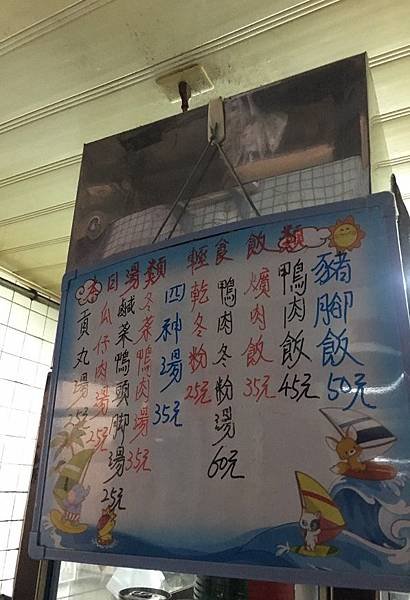 飯類
豬腳飯50元
鴨肉飯45元
爌肉飯35元
輕食
鴨肉冬粉湯60元
乾冬粉25元
本日湯類
四神湯35元
冬菜鴨肉湯35元
鹹菜鴨頭腳湯25元
瓜仔肉湯25元
貢丸湯25元